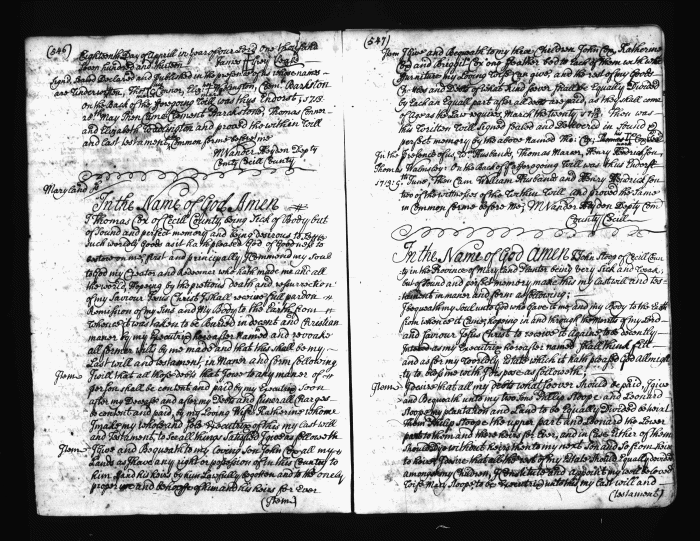 (546)
Eighteenth Day of Aprill in Year of our Lord One thousand
Seven hundred and thirteen
Signed Sealed Declared and Published in the presence of us whose names
are Underwritten, Tho: Connor, Eliz: Clement Barkston
on the Back of the foregoing Will was thus Endorst 1713.
May Then Came Clement Barkstone, Thomas Connor
and Elizabeth and proved the within Will
and Last testament, Common forme before me
M Vander Heyden Depty
County Cecill County
Maryland ss
In the Name of God Amen
I Thomas Cox of Cecill County being Sick of Body but
of Sound and perfect memory and being desirous to
such worldly Goods as it hath pleased God of Goodness to
bestow on me, first and principally I Commend my Soul
to God my Creator and Redeemer who hath made me and all
the world, Hoping by the pretious death and resurrection
of my Saviour Jesus Christ I shall receive full pardon
Remission of my Sins and My Body to the Earth from
whence it was taken to be buried in decent and Christian
maner by my Executrix hereafter named and revoake
all former wills by me made and that this shall be my
Last will and testament in Maner and form following
Item I will that all those debts that I owe to any maner of
person shall be content and paid by my Executrix soon
after my Decease and after my Debts and funerall Charges
be content and paid, by my Loving Wife Katherine whome
I make my whole and sole Executrix of this my Last will
and Testament, to see all things Satisfied I give as followeth
Item I Give and Bequeath to my Loving Son John Cox all my
Lands as I have any right or possession of in this Country to
him and his heirs by him Lawfully begotten and to the only
proper use and behoofe of him and his heirs for Ever
(Item)
(547)
Item I Give and Bequeath to my three Children John Cox, Katherine
Cox and Bright Cox one feather bed to Each of them with what
furniture my Loving Wife Can give, and the rest of my Goods
Cattles and Debts of what kind soever shall be Equally Divided
by Each an Equall part after all debts are paid, as they shall come
of age as the Law requires, March the twenty This was
this Written Will Signed Sealed and Delivered in sound &
perfect memory by the above Named Tho: Cox, Thomas Cox
In the Presence of us Wm Husbands, Thomas Mercer, Henry Hendrickson,
Thomas Walmsby. On the Back of the foregoing Will was thus Endorst
1713. June, Then Came William Husbands and Henry Hendrickson
two of the witnesses of the within Will and proved the Same
in Common forme before Me, M Vander Heyden Depty Com
County Cecill
In the Name of God Amen I John Stoop of Cecill County
in the Province of Maryland Planter being very Sick and Weak,
but of Sound and perfect memory make this my Last will and testament
in maner and form as following;
I bequeath my Soul unto God who Gave it me and my Body to the Earth
from whence it Came; hoping in and through the merits of my Lord
and Saviour Jesus Christ to receive it againe to be decently
Interred as my Executrix hereafter named shall think fitt
and as for my Worldly Estate which it hath pleased God Almighty
to bless me with I Dispose as followeth:
Item I desire that all my debts whatsoever should be paid, I give
and Bequeath unto my two Sons Philip Stoope and Leonard
Stoope my plantation and Land to be Equally Divided between
them Philip Stoope the upper part and Leonard the Lower
part to them and their heirs for Ever, and in Case Either of them
Should dye without heirs then to my next Son and So from heir
to heir, I desire that all the rest of my Estate Should Equally divided
among my Children, I Constitute and appoint my well beloved
Wife Mary Stoope to be Executrix unto this my Last will and
(testament)